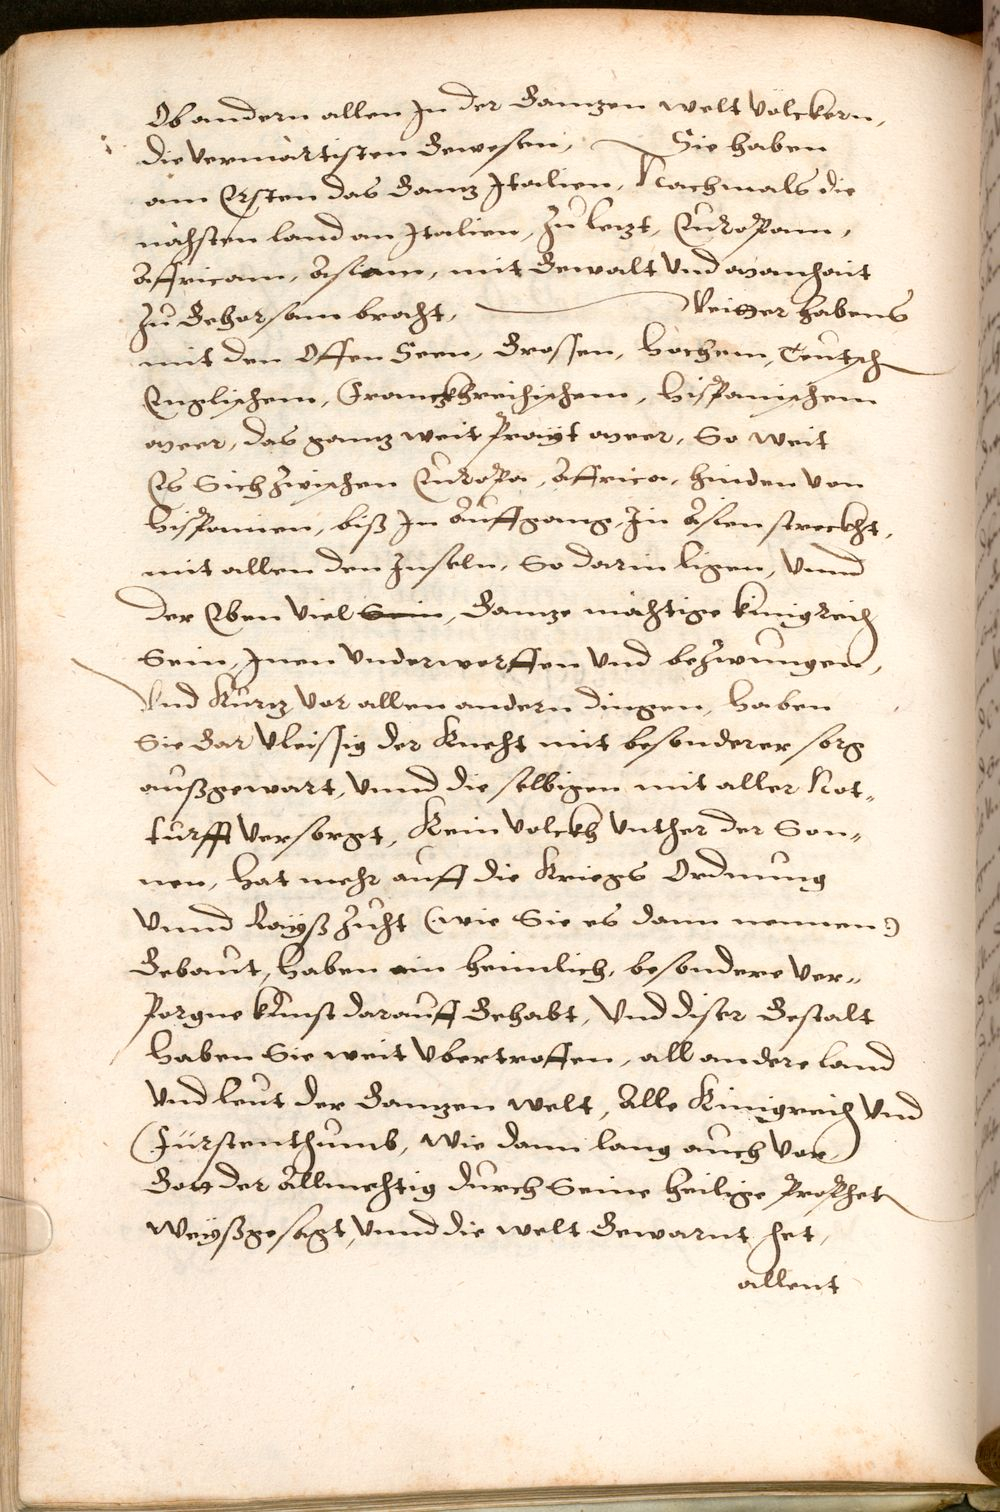 Ob andern allen Jn der Ganzen welt völckern,
die vermärtisten Gewesen, Sie haben
am Ersten das Ganz Jtalien, Nachmals die
nächsten land an Jtalien, zu letzt, Europam,
Affricam, Asiam, mit Gewalt vnd manhait
zu Gehorsam bracht, Weitter habens
mit den Offen Seen, Grossen, Hochem, Teutsch
Englischem, Franckhreichischem, Hispanischem
meer, das gantz weit prayt meer, So weit
Es Sich zwischen Europa, Affrica, hinden von
Hispanien, biß Jn Auffgang, Jn Asien streckht,
mit allen den Jnseln, So darin ligen, Vnnd
der Eben viel Sein, Ganze mächtige künigreich
Sein, Jnen vnderworffen vnd bezwungen,
Vnd kürtz vor allen andern dingen, haben
Sie Gar vleissig der Kneht mit besonderer sorg
außgewart, Vnnd die selbigen mit aller Not„
turfft versorgt, Kein volckh vnther der Son„
nen, hat mehr auff die Kriegs Ordnung
Vnnd Rayß zuht (wie Sie es dann nennen:)
Gebaut, haben ein heimlich, besondere ver„
porgne kunst darauff Gehabt, Vnd diser Gestalt
haben Sie weit vbertroffen, all andere land
vnd leut der Ganzen welt, Alle Künigreich vnd
Fürstenthumb, Wie dann lang auch vor
Gott der Allmechtig durch Seine heilige Prophet
weyßgesagt, Vnnd die welt Gewarnt het,
allent